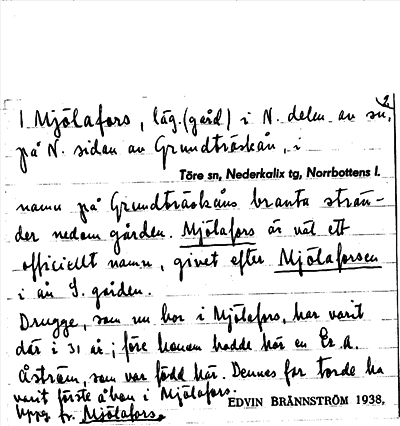 2
1 Mjölafors, läg. (gård) i N. delen av sn,
på N. sidan av Grundträskån, i
Töre sn, Nederkalix tg, Norrbottens l.
namn på Grundträskåns branta strän-
der nedom gården. Mjölafors är väl ett
officiellt namn, givet efter Mjölaforsen
i ån S. gården.
Drugge, som nu bor i Mjölafors, har varit
där i 31 år; före honom hade här en Er. A.
Åström, som var född här. Dennes far torde ha
varit förste åbon i Mjölafors.
Uppg. fr. Mjölafors.
EDVIN BRÄNNSTRÖM 1938,